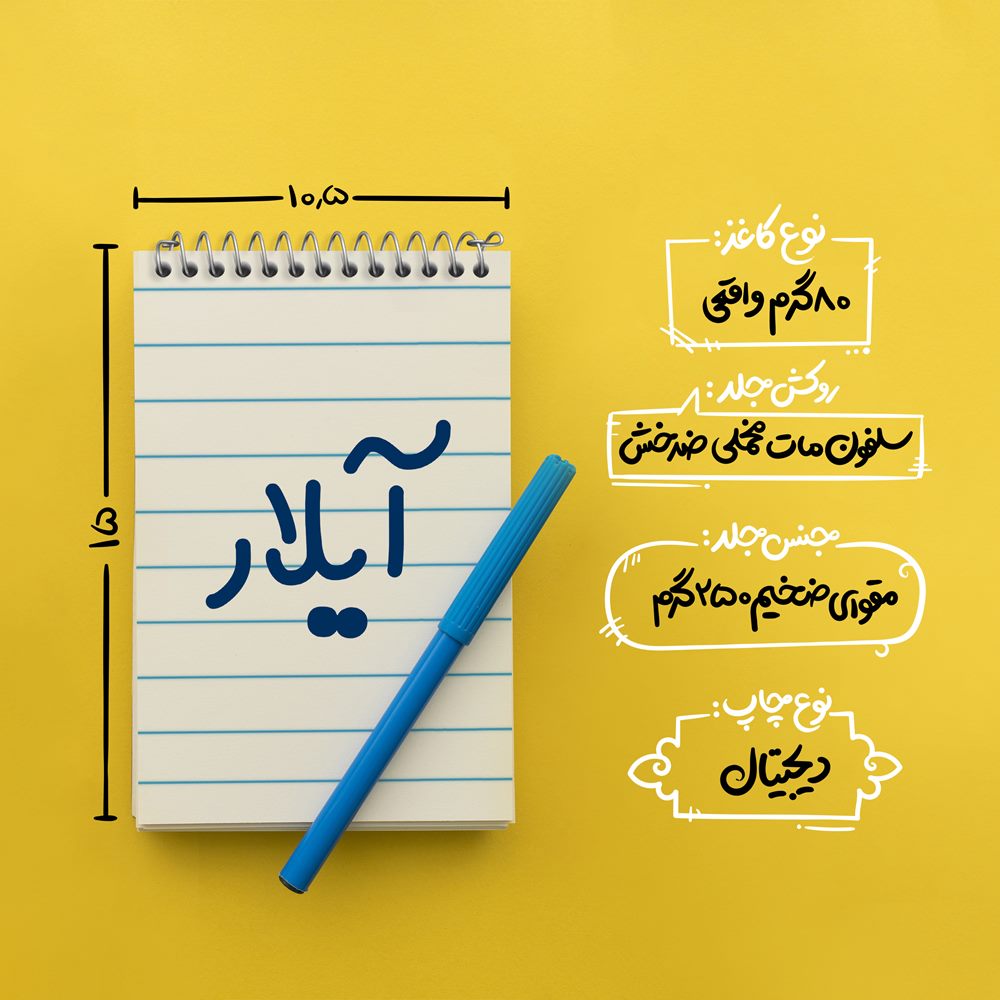 ۱۰٫۵
۱۵
آیلار
نوع کاغذ:
۸۰ گرم واقعی
روکش جلد:
سلفون مات مخملی ضدخش
جنس جلد:
مقوای ضخیم ۲۵۰ گرم
نوع چاپ:
دیجیتال